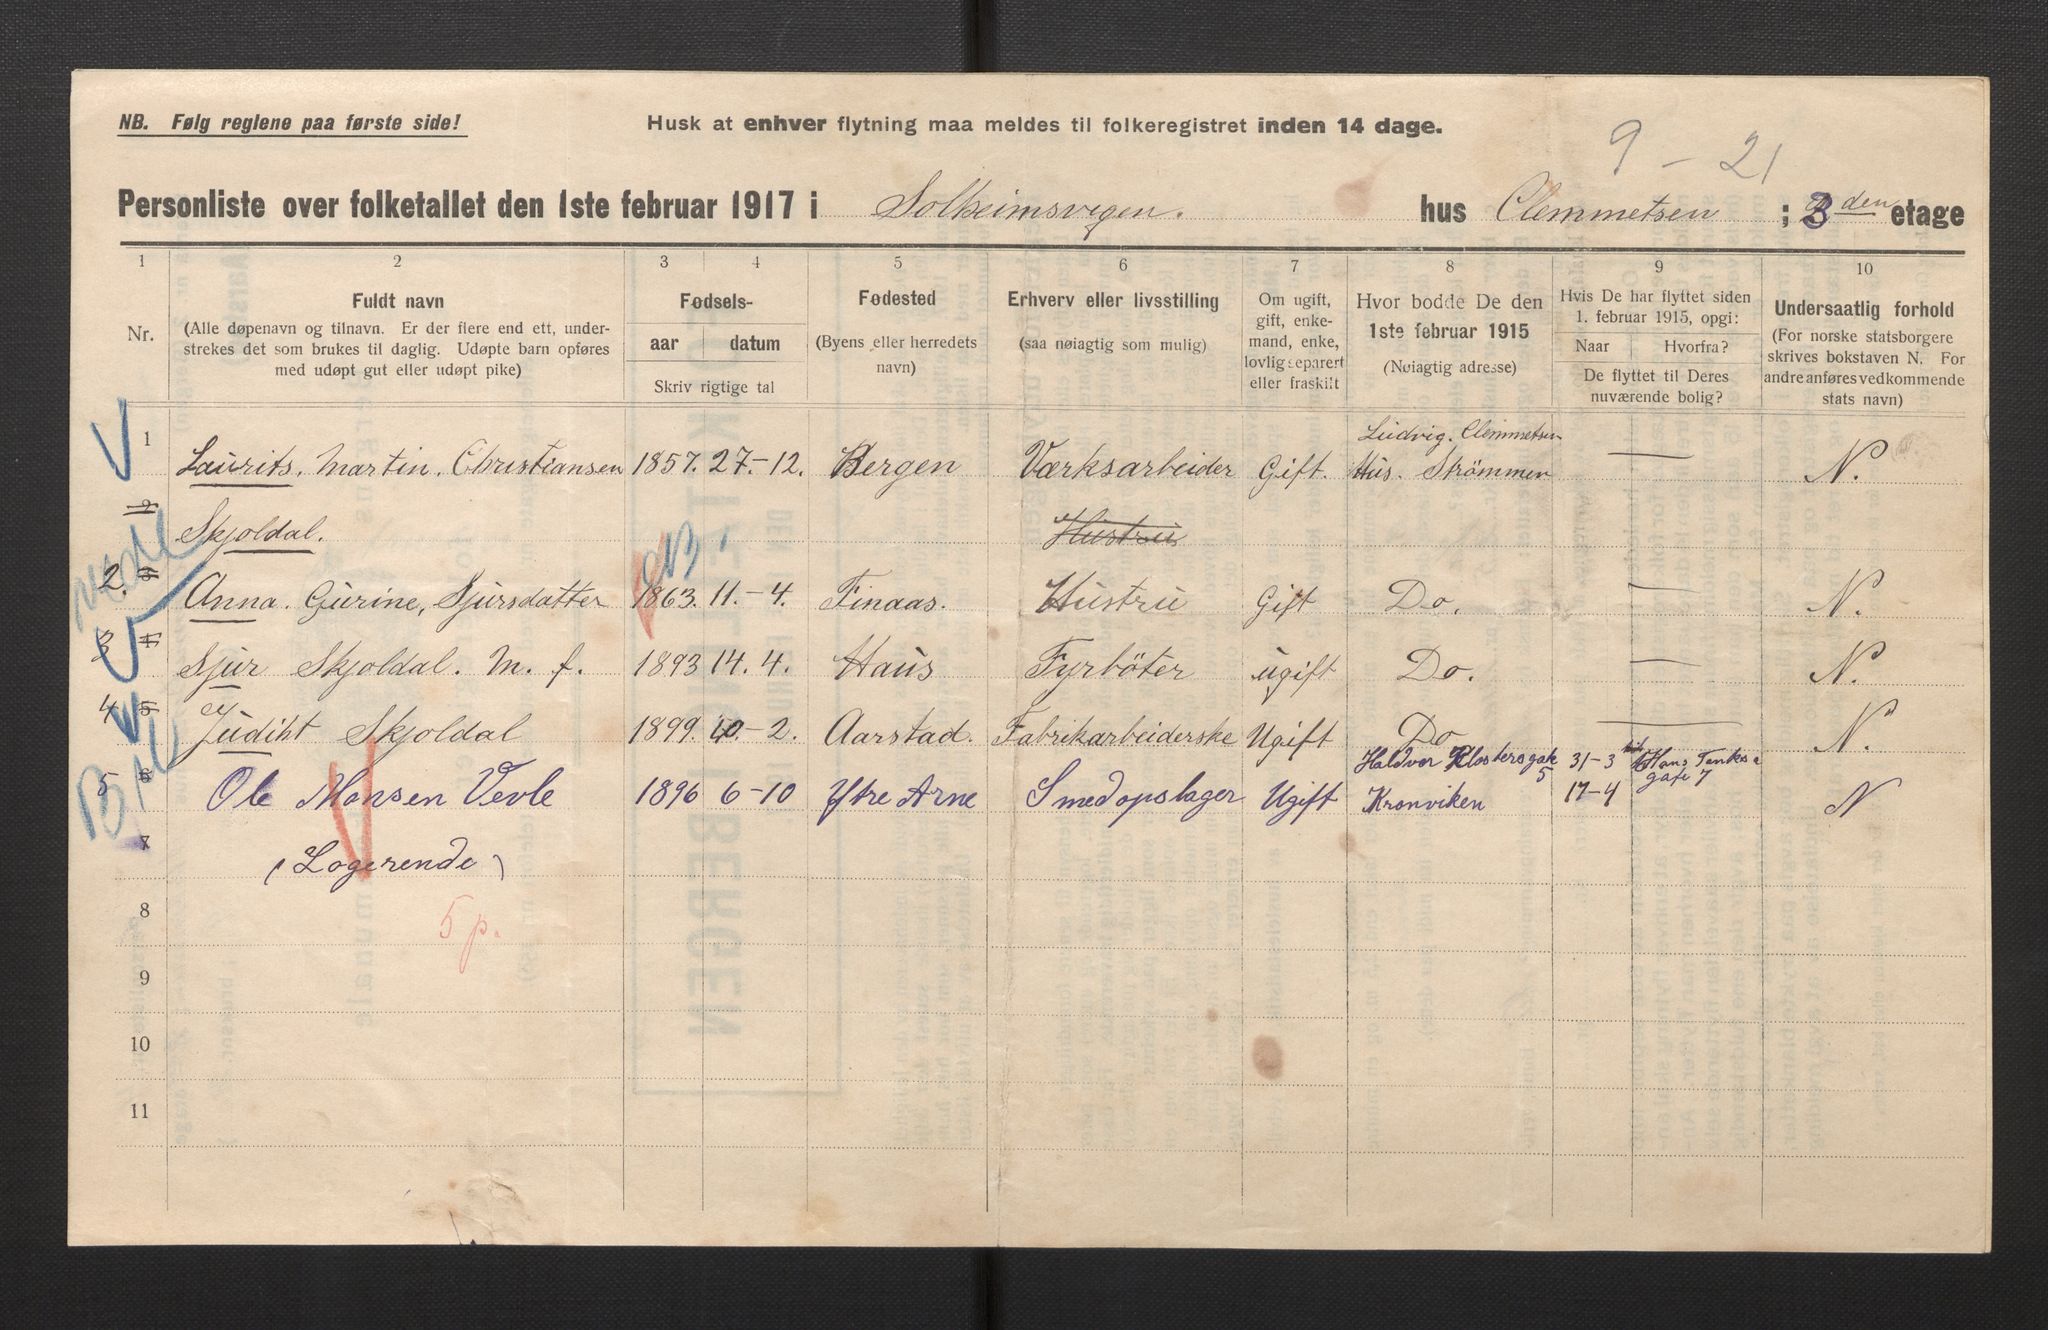 NB. Følg reglene paa første side!
Husk at enhver flytning maa meldes til folkeregistret inden 14 dage.
9 – 21
Personliste over folketallet den 1ste februar 1917 i Solheimsvigen. hus Clemmetsen ; 3 den etage
1 2 3 4 5 6 7 8 9 10
Nr.
Fuldt navn
(Alle døpenavn og tilnavn. Er der flere end ett, under-
strekes det som brukes til daglig. Udøpte barn opføres
med udøpt gut eller udøpt pike)
Fødsels-
aar datum
Skriv rigtige tal
Fødested
(Byens eller herredets
navn)
Erhverv eller livsstilling
(saa nøiagtig som mulig)
Om ugift,
gift, enke-
mand, enke,
lovlig separert
eller fraskilt
Hvor bodde De den
1ste februar 1915
(Nøiagtig adresse)
Hvis De har flyttet siden
1. februar 1915, opgi:
Naar Hvorfra?
De flyttet til Deres
nuværende bolig?
Undersaatlig forhold
(For norske statsborgere
skrives bokstaven N. For
andre anføres vedkommende
stats navn)
Ludvig. Clemmetsen
1 Laurits. Martin. Christiansen 1857. 27.-12. Bergen Værksarbeider Gift. Hus. Strömmen — — N.
2 Skjoldal. Hustru
2. 3 Anna. Gurine, Sjursdatter 1863. 11.-4. Finaas. Hustru Gift Do. — — N.
3 4 Sjur Skjoldal. M. f. 1893 14.4. Haus Fyrböter ugift Do. — — N.
4 5 Judiht Skjoldal 1899. 10.-2. Aarstad. Fabrikarbeiderske Ugift Do — N.
Haldvor Klostersgate 5 31-3 Hans Tanks
gate 7
5 6 Ole Monsen Vevle 1896 6-10 Ytre Arne Smedopslager Ugift Kronviken 17-4 N
7 (Logerende)
8 5 p.
9
10
11